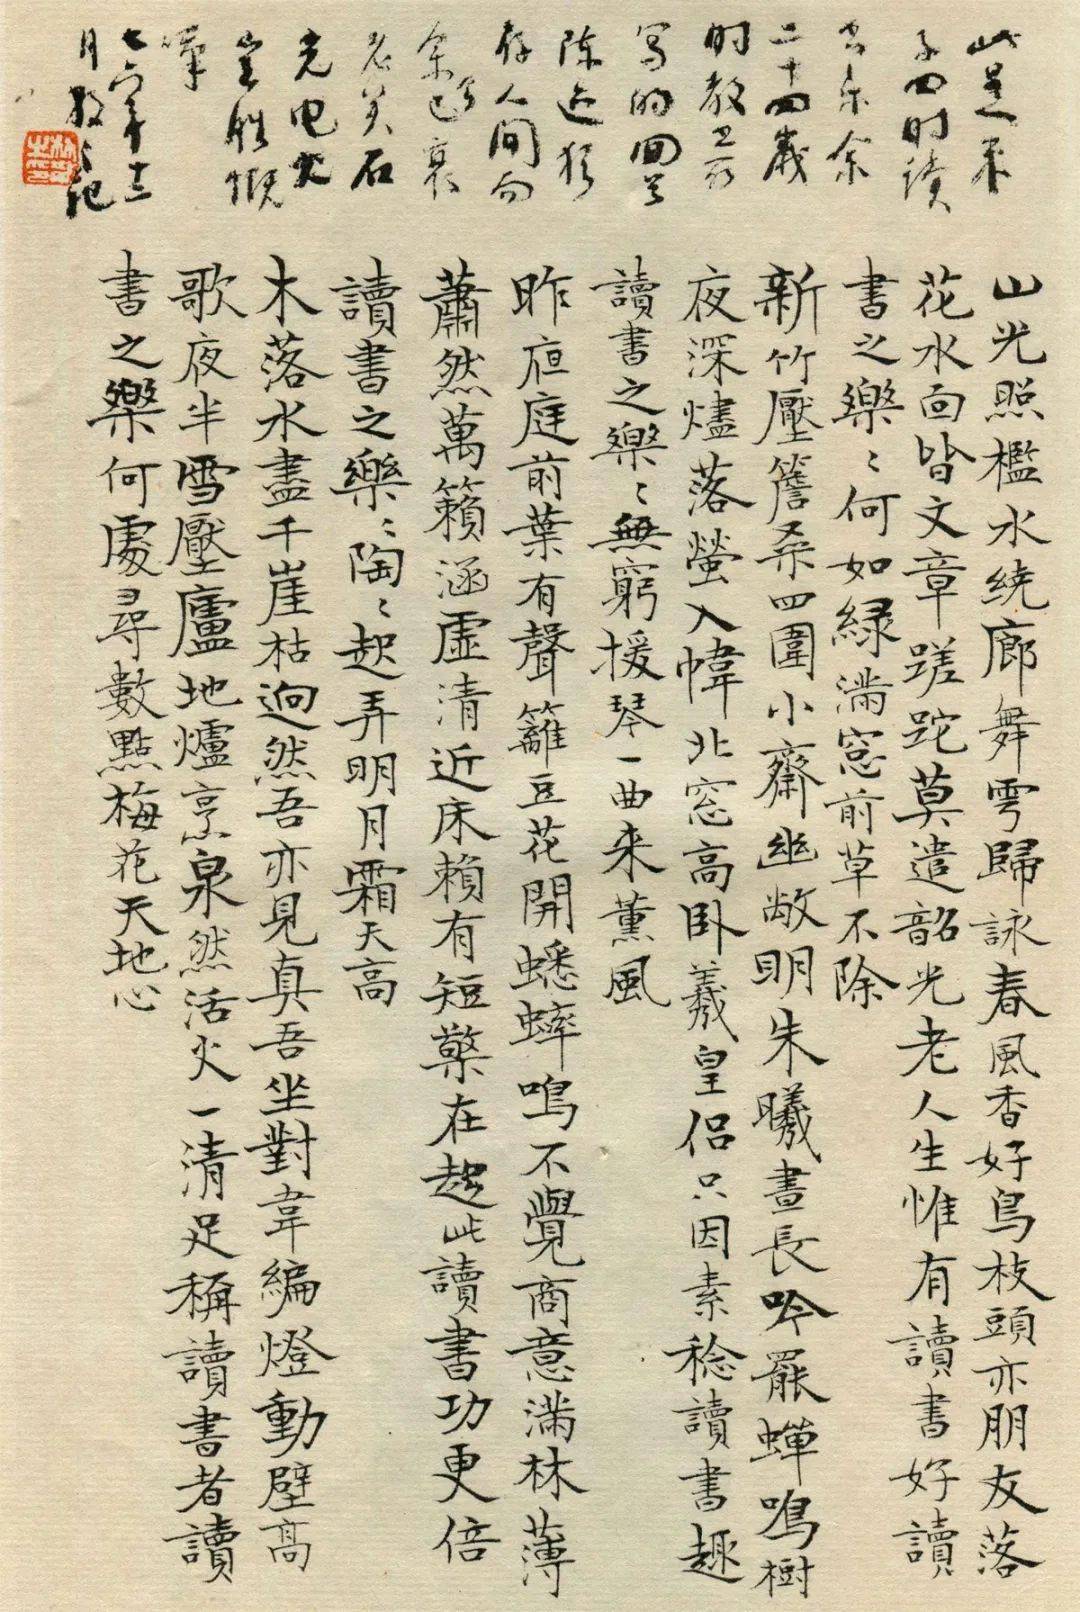 此是朱
子四时读
书乐余
二十四岁
时教
写的
陈迹犹
存人间而
余已衰
老矣石
光电火
岂胜慨
嘆
七六年十二
月散之记
山光照檻水繞廊舞雩歸詠春風香好鳥枝頭亦朋友落
花水面皆文章蹉跎莫遣韶光老人生惟有讀書好讀
書之樂〻何如綠滿窓前草不除
新竹壓簷桑四圍小齋幽敞明朱曦晝長吟罷蟬鳴樹
夜深燼落螢入幃北窓高臥羲皇侣只因素稔讀書趣
讀書之樂〻無窮援琴一曲来薰風
昨夜庭前葉有聲籬豆花開蟋蟀鳴不覺商意滿林薄
蕭然萬籟涵虛清近床賴有短檠在起此讀書功更倍
讀書之樂〻陶〻起弄明月霜天高
木落水盡千崖枯迥然吾亦見真吾坐對韋編燈動壁高
歌夜半雪壓廬地爐烹泉然活火一清足稱讀書者讀
書之樂何處尋數點梅花天地心